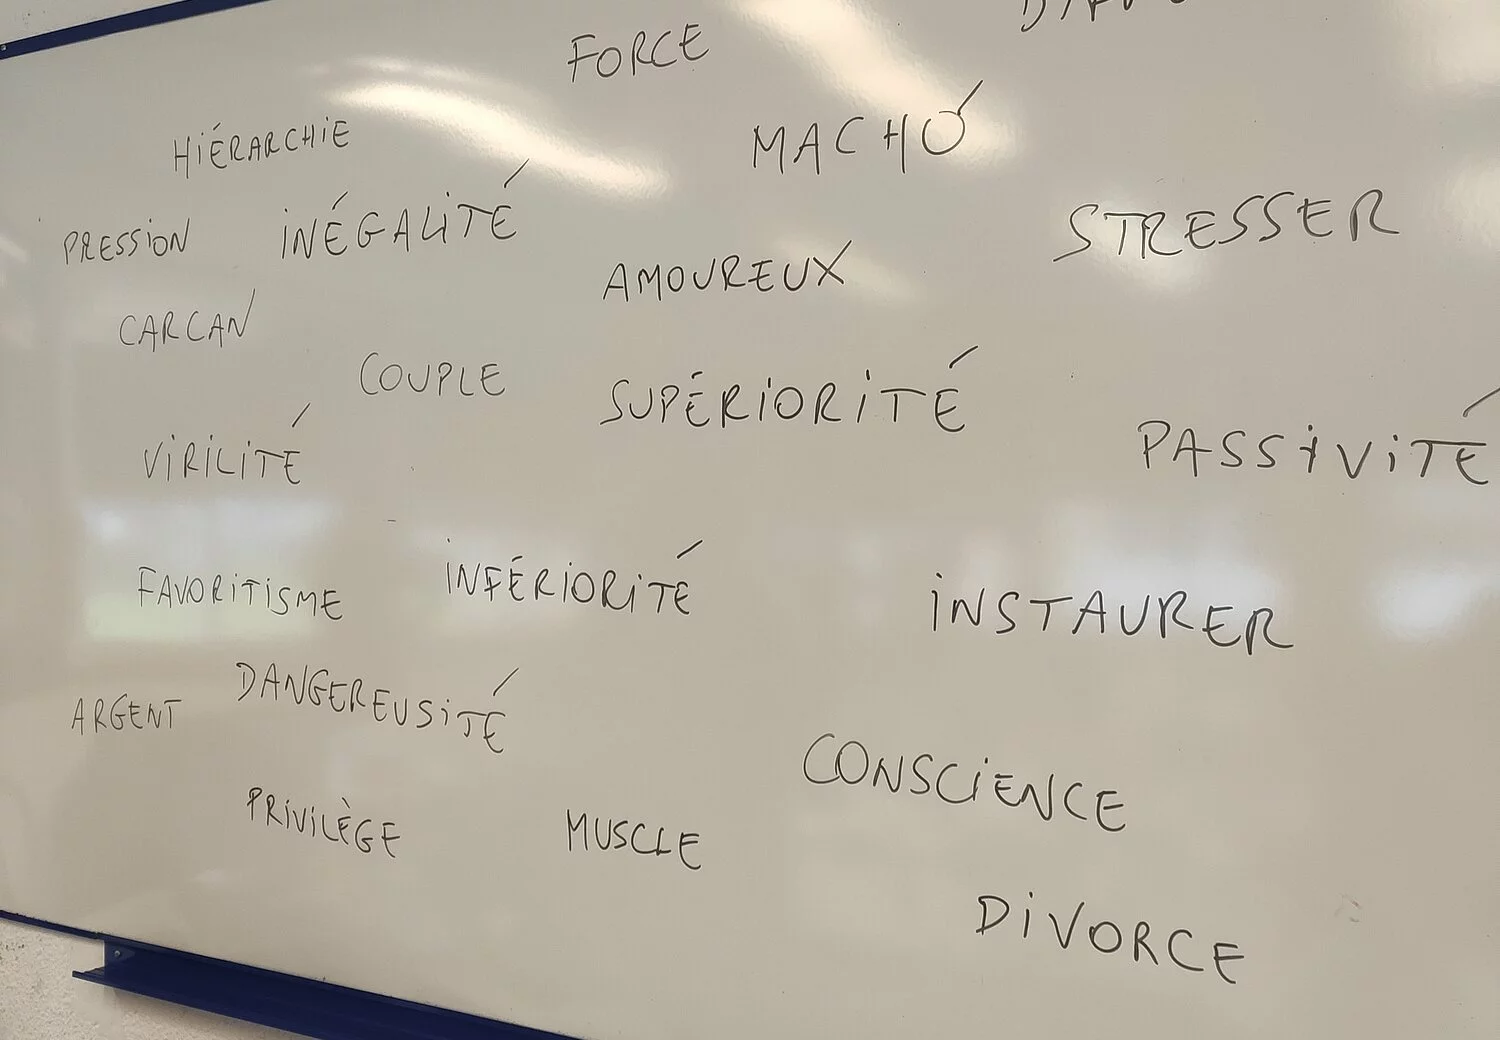 FORCE
MACHO
HIÉRARCHIE
PRESSION
INÉGALITÉ
STRESSER
AMOUREUX
CARCAN
COUPLE
SUPÉRIORITÉ
VIRILITÉ
PASSIVITÉ
FAVORITISME
INFÉRIORITÉ
INSTAURER
ARGENT
DANGEREUSITÉ
CONSCIENCE
PRIVILÈGE
MUSCLE
DIVORCE